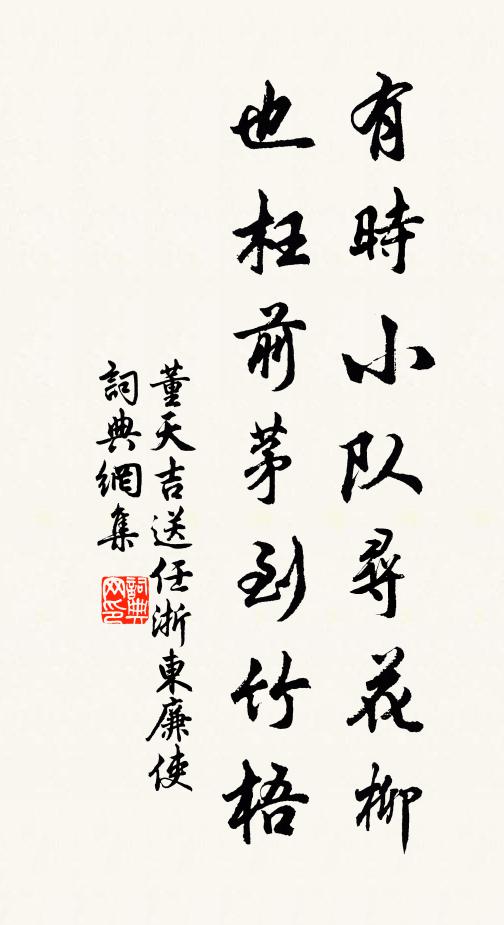 有時小队尋花柳
也枉前茅到竹梧
董天吉送任浙東廉使
詞典網集
詞典网印